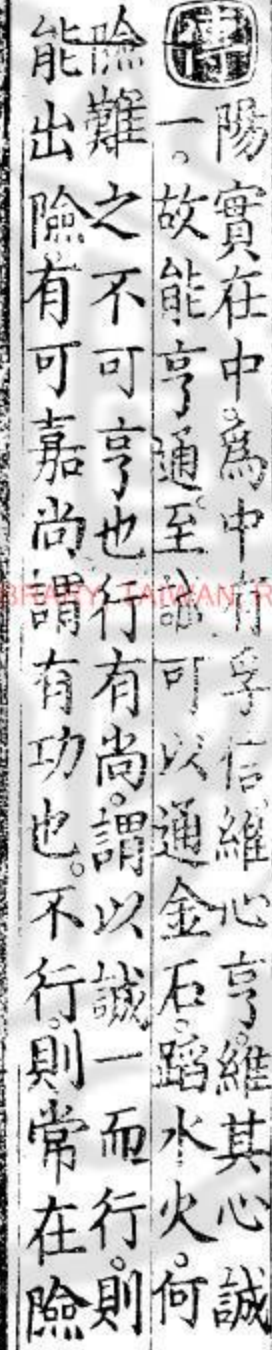 傳
陽實在中。為中有孚信。維心亨。維其心誠
一。故能亨通。至誠可以通金石。蹈水火。何
險難之不可亨也。行有尚。謂以誠一而行。則
能出險。有可嘉尚。謂有功也。不行。則常在險